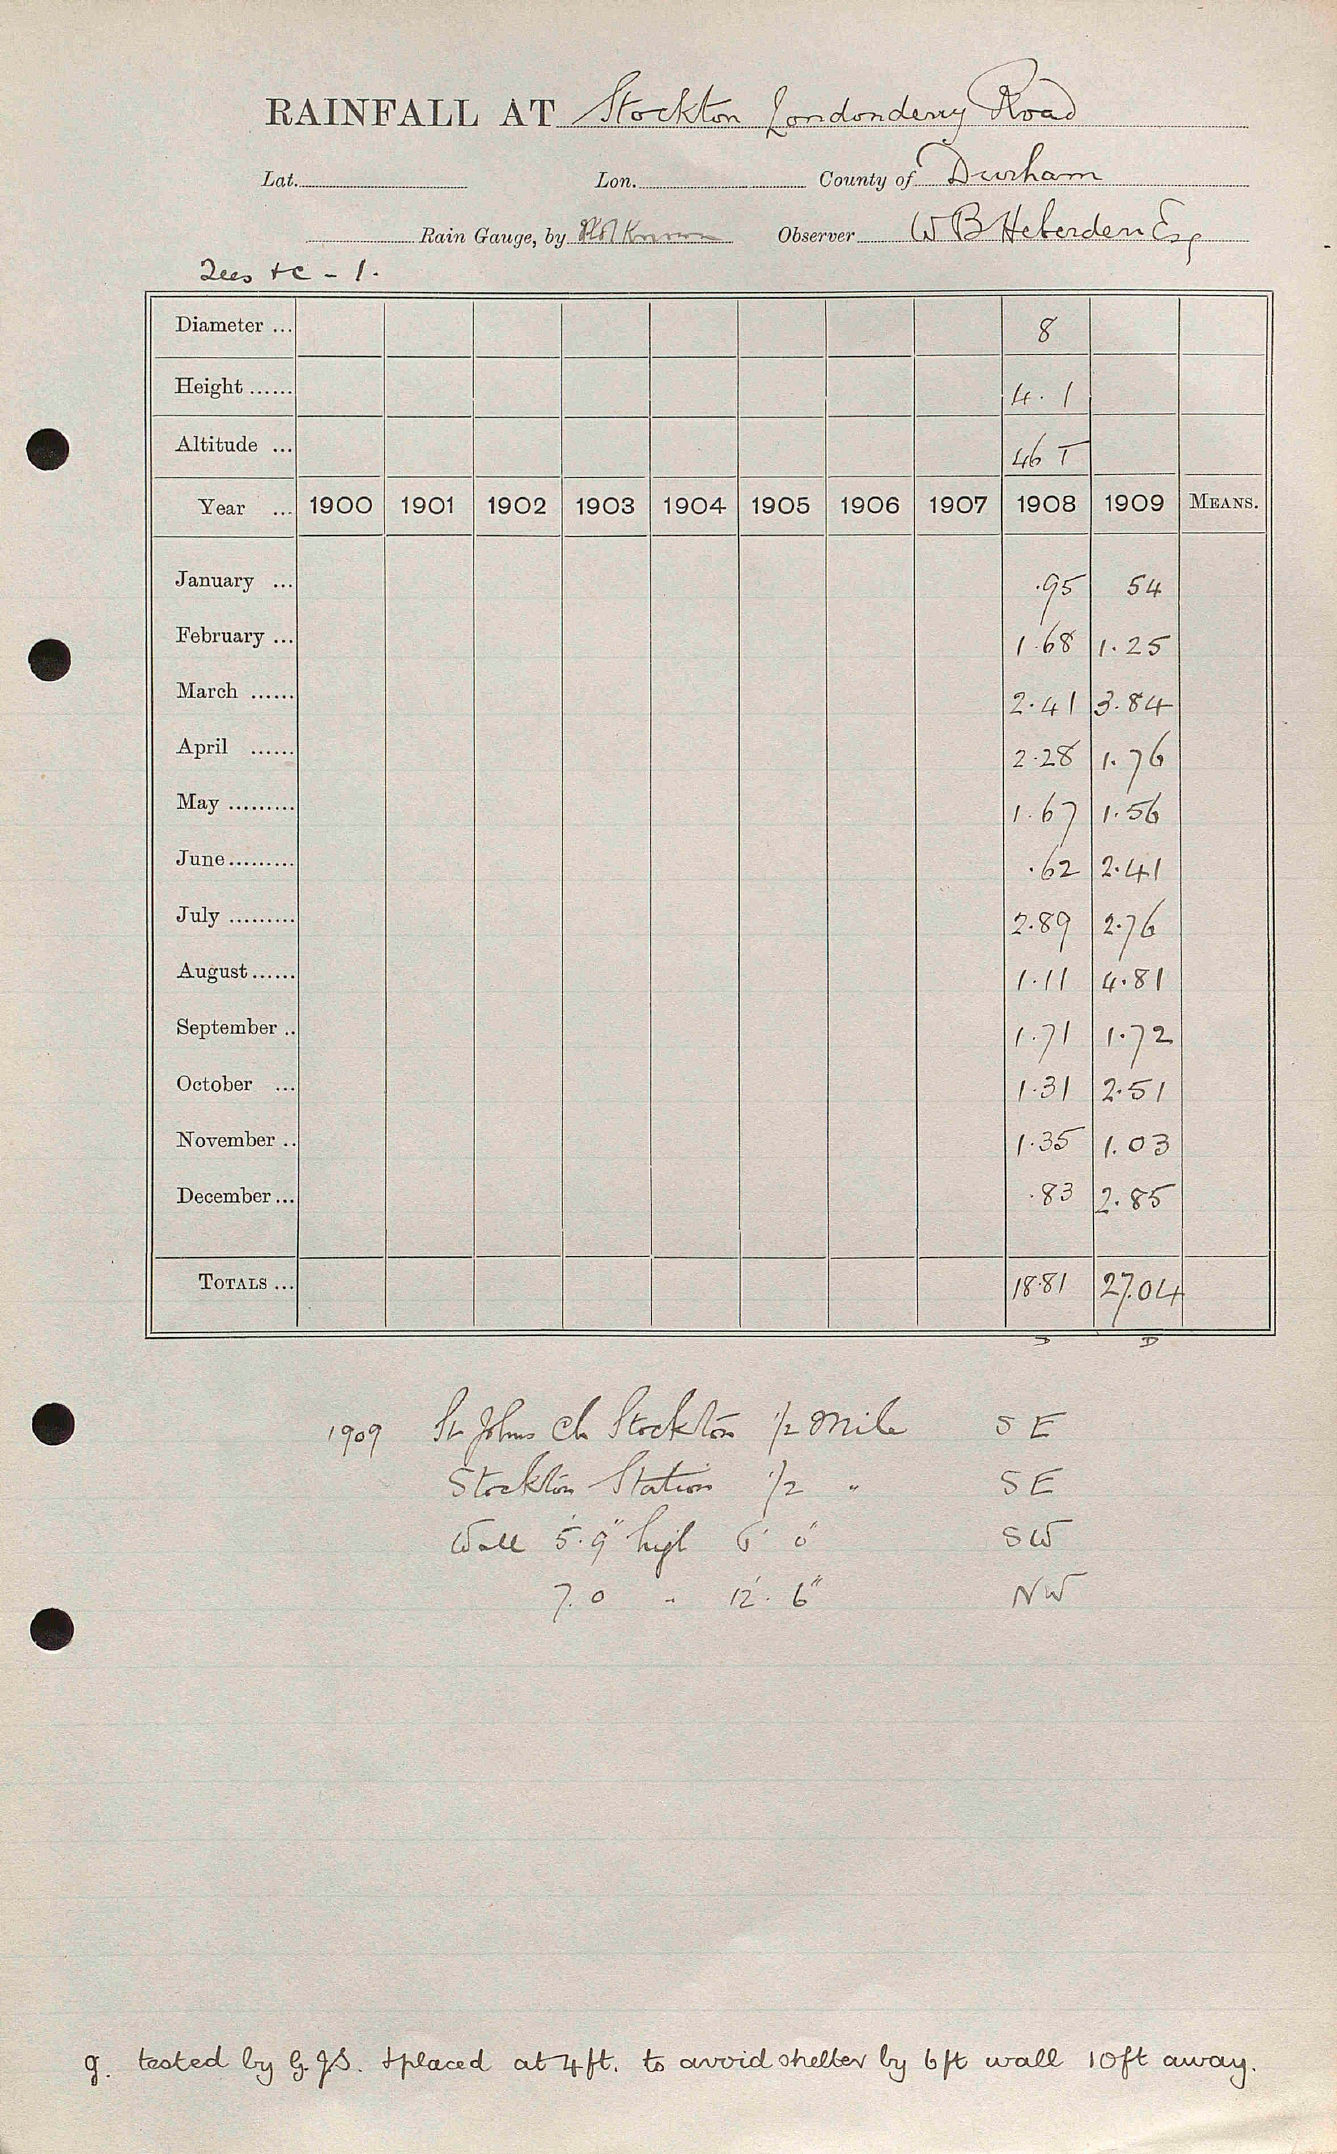 RAINFALL AT Stockton Londonderry Road
Lat. Lon. County of Durham
Rain Gauge, by Not Known Observer W B Heberden Esq
Tees &c - 1.
Diameter ... 8
Height ...... 4. 1
Altitude ... 46 T
Year ... 1900 1901 1902 1903 1904 1905 1906 1907 1908 1909 MEANS.
January ... .95 54
February ... 1.68 1.25
March ...... 2.41 3.84
April ...... 2.28 1.76
May ......... 1.67 1.56
June ......... .62 2.41
July ......... 2.89 2.76
August ...... 1.11 4.81
September .. 1.71 1.72
October ... 1.31 2.51
November .. 1.35 1.03
December ... .83 2.85
TOTALS ... 18.81 27.04
D D
1909 St Johns Ch Stockton 1/2 Mile S E
Stockton Station 1/2 " S E
Wall 5'.9" high 6' 0" S W
7. 0 " 12'. 6" N W
g. tested by G.J.S. & placed at 4ft. to avoid shelter by 6ft wall 10ft away.